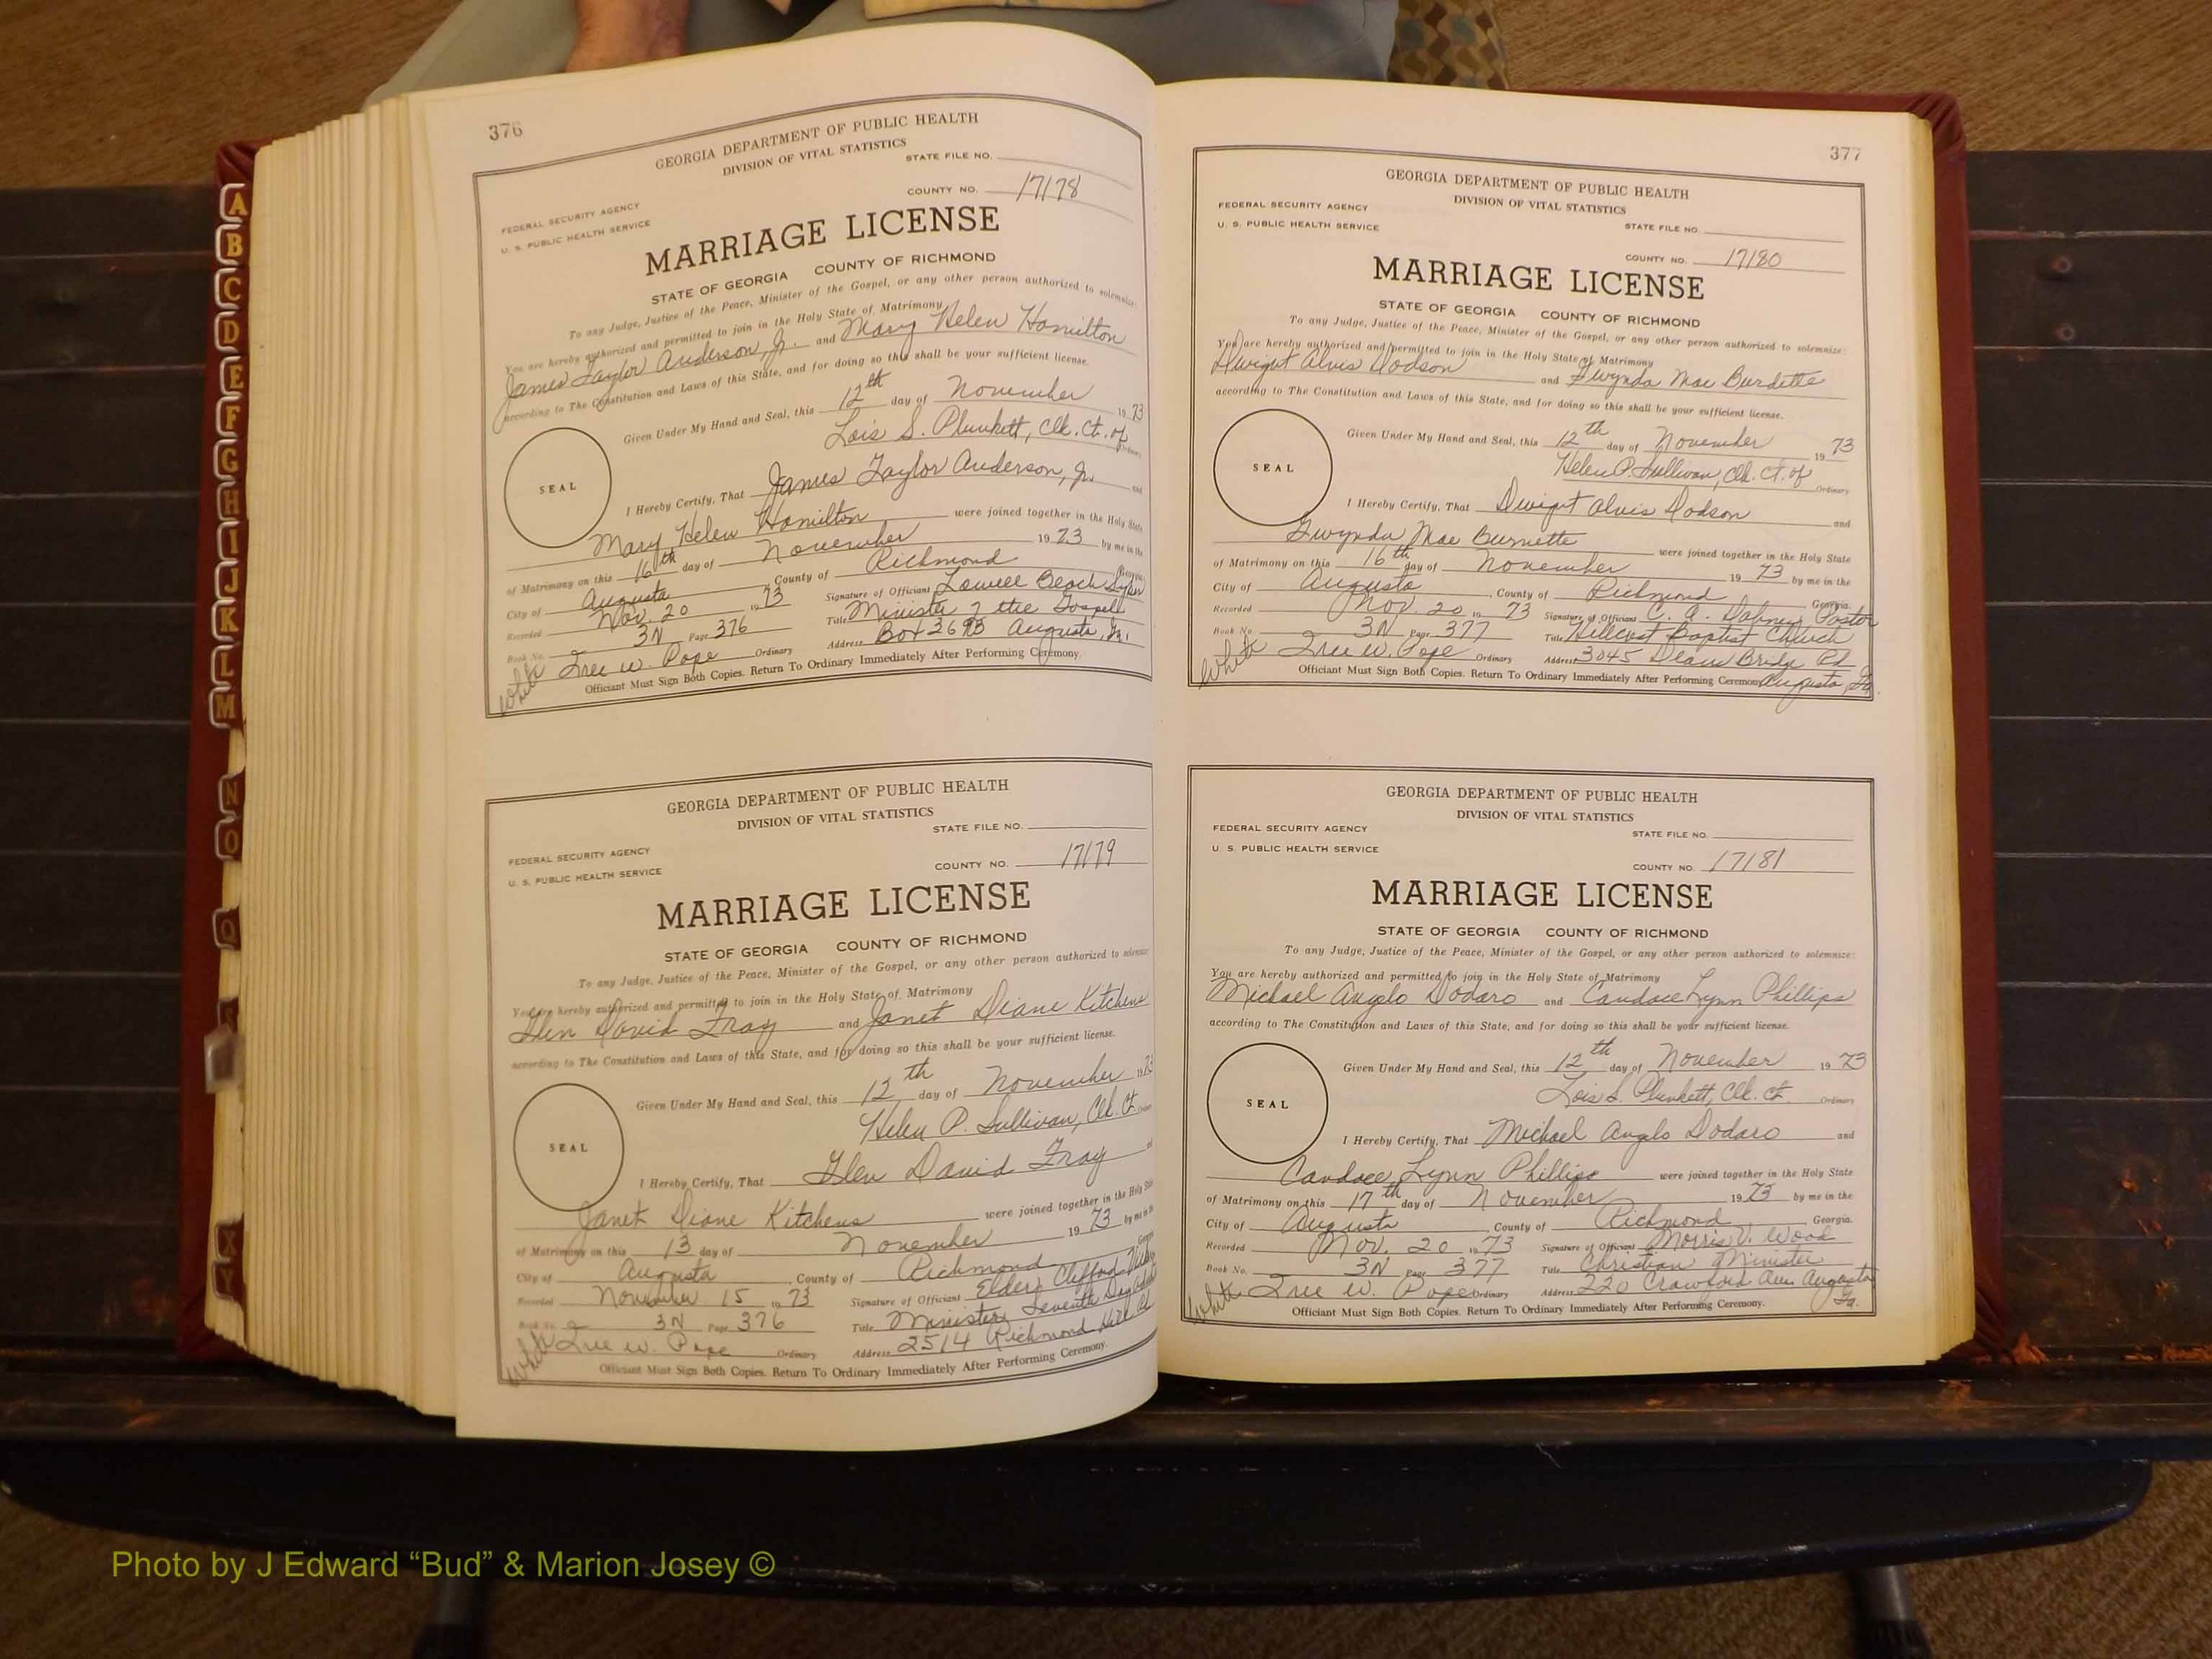 A
B
C
D
E
F
G
H
I
J
K
L
M
N
O
Q
S
X
Y
376
GEORGIA DEPARTMENT OF PUBLIC HEALTH
DIVISION OF VITAL STATISTICS
STATE FILE NO.
COUNTY NO. 17178
FEDERAL SECURITY AGENCY
U. S. PUBLIC HEALTH SERVICE
MARRIAGE LICENSE
STATE OF GEORGIA COUNTY OF RICHMOND
To any Judge, Justice of the Peace, Minister of the Gospel, or any other person authorized to solemnize:
You are hereby authorized and permitted to join in the Holy State of Matrimony
James Taylor Anderson, Jr. and Mary Helen Hamilton
according to The Constitution and Laws of this State, and for doing so this shall be your sufficient license.
Given Under My Hand and Seal, this 12th day of November 1973
Lois S. Plunkett, Clk. Ct. of Ordinary
SEAL
I Hereby Certify, That James Taylor Anderson, Jr. and
Mary Helen Hamilton were joined together in the Holy State
of Matrimony on this 16th day of November 1973 by me in the
City of Augusta, County of Richmond Georgia.
Recorded Nov. 20 1973 Signature of Officiant Lowell Beach
Book No. 3N Page 376 Title Minister of the Gospel
White Iree W. Pope Ordinary Address Box 3695 Augusta, Ga.
Officiant Must Sign Both Copies. Return To Ordinary Immediately After Performing Ceremony.
GEORGIA DEPARTMENT OF PUBLIC HEALTH
DIVISION OF VITAL STATISTICS
STATE FILE NO.
COUNTY NO. 17179
FEDERAL SECURITY AGENCY
U. S. PUBLIC HEALTH SERVICE
MARRIAGE LICENSE
STATE OF GEORGIA COUNTY OF RICHMOND
To any Judge, Justice of the Peace, Minister of the Gospel, or any other person authorized to solemnize
You are hereby authorized and permitted to join in the Holy State of Matrimony
Glen David Fray and Janet Diane Kitchens
according to The Constitution and Laws of this State, and for doing so this shall be your sufficient license.
Given Under My Hand and Seal, this 12th day of November 1973
Helen P. Sullivan, Clk. Ct. Ordinary
SEAL
I Hereby Certify, That Glen David Fray and
Janet Diane Kitchens were joined together in the Holy State
of Matrimony on this 13 day of November 1973 by me in the
City of Augusta, County of Richmond Georgia
Recorded November 15 1973 Signature of Officiant Elder Clifford
Book No. 3N Page 376 Title Minister, Seventh Day
White Iree W. Pope Ordinary Address 2514 Richmond Hill Rd
Officiant Must Sign Both Copies. Return To Ordinary Immediately After Performing Ceremony.
377
GEORGIA DEPARTMENT OF PUBLIC HEALTH
DIVISION OF VITAL STATISTICS
FEDERAL SECURITY AGENCY
U. S. PUBLIC HEALTH SERVICE
STATE FILE NO.
COUNTY NO. 17180
MARRIAGE LICENSE
STATE OF GEORGIA COUNTY OF RICHMOND
To any Judge, Justice of the Peace, Minister of the Gospel, or any other person authorized to solemnize:
You are hereby authorized and permitted to join in the Holy State of Matrimony
Dwight Alvis Dodson and Gwynda Mae Burdette
according to The Constitution and Laws of this State, and for doing so this shall be your sufficient license.
Given Under My Hand and Seal, this 12th day of November 1973
Helen P. Sullivan, Clk. Ct. of Ordinary
SEAL
I Hereby Certify, That Dwight Alvis Dodson and
Gwynda Mae Burnette were joined together in the Holy State
of Matrimony on this 16th day of November 1973 by me in the
City of Augusta, County of Richmond Georgia.
Recorded Nov. 20 1973 Signature of Officiant C. A. Dabney Pastor
Book No. 3N Page 377 Title Hillcrest Baptist Church
White Iree W. Pope Ordinary Address 3045 Deans Bridge Rd
Officiant Must Sign Both Copies. Return To Ordinary Immediately After Performing Ceremony. Augusta, Ga.
GEORGIA DEPARTMENT OF PUBLIC HEALTH
DIVISION OF VITAL STATISTICS
FEDERAL SECURITY AGENCY
U. S. PUBLIC HEALTH SERVICE
STATE FILE NO.
COUNTY NO. 17181
MARRIAGE LICENSE
STATE OF GEORGIA COUNTY OF RICHMOND
To any Judge, Justice of the Peace, Minister of the Gospel, or any other person authorized to solemnize:
You are hereby authorized and permitted to join in the Holy State of Matrimony
Michael Angelo Dodaro and Candace Lynn Phillips
according to The Constitution and Laws of this State, and for doing so this shall be your sufficient license.
Given Under My Hand and Seal, this 12th day of November 1973
Lois S. Plunkett, Clk. Ct. Ordinary
SEAL
I Hereby Certify, That Michael Angelo Dodaro and
Candace Lynn Phillips were joined together in the Holy State
of Matrimony on this 17th day of November 1973 by me in the
City of Augusta, County of Richmond, Georgia.
Recorded Nov. 20 1973 Signature of Officiant Morris V. Wood
Book No. 3N Page 377 Title Christian Minister
White Iree W. Pope Ordinary Address 220 Crawford Ave Augusta Ga.
Officiant Must Sign Both Copies. Return To Ordinary Immediately After Performing Ceremony.
Photo by J Edward “Bud” & Marion Josey ©